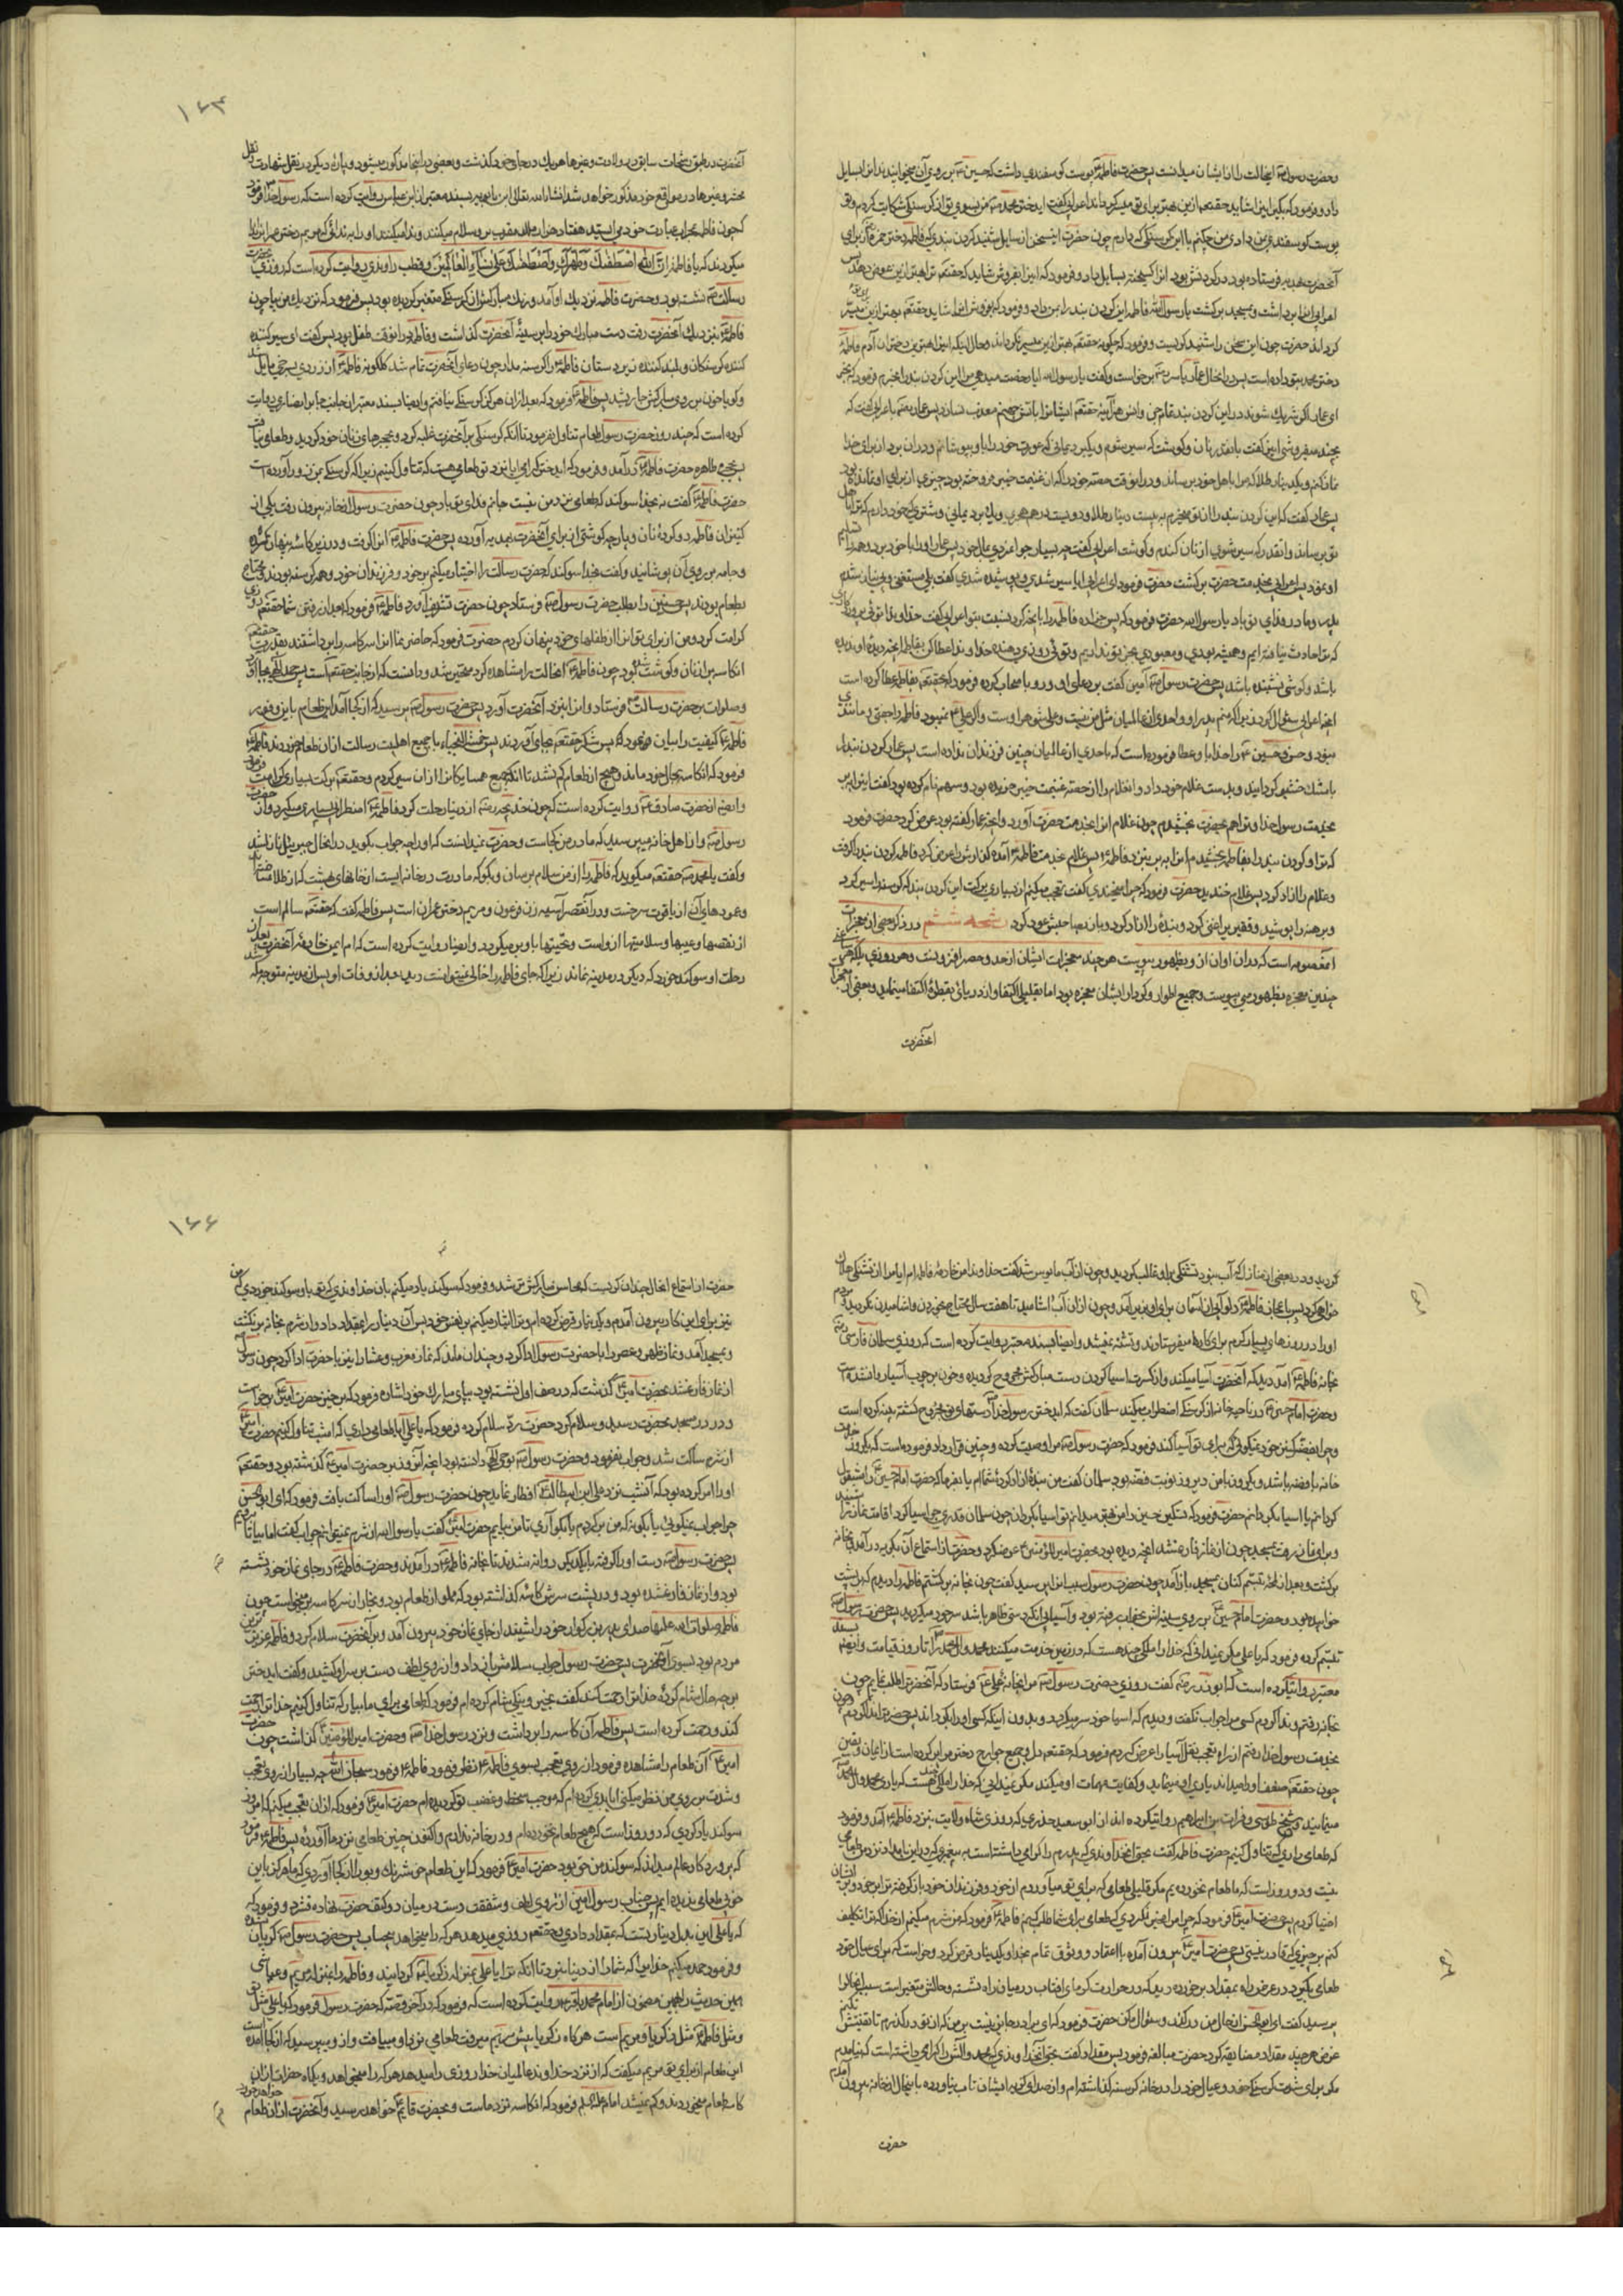 وحضرت رسول ایحالت را از ایشان میدانست پس حضرت فاطمه پوست کوسفندی داشت که حسین بر روی آن میخوابیدند
داد و فرمود که بگیر این را شاید حقتعالی ازین بهتر برای تو میسر کرداند اعرابی گفت ای دختر محمد من بسوی تو از کرسنکی شکایت کردم و تو
پوست کوسفند بمن دادی من چکنم با این کرسنکی که دارم چون حضرت این سخن از سایل شنید کردن بندی که فاطمه دختر حمزه از برای
آنحضرت هدیه فرستاده بود در کردنش بود انرا کسیخته بسایل داد و فرمود که این را بفروش شاید که حقتعالی ترا بهتر ازین عوض دهد پس
اعرابی انرا برداشت و بمسجد برکشت یا رسول الله فاطمه این کردن بند را بمن داد و فرمود که بفروش انرا شاید حقتعالی بهتر ازین میسر
کرداند حضرت چون این سخن را شنید کریست و فرمود که چکونه حقتعالی بهتر ازین میسر نکرداند و حال اینکه این را بهترین دختران آدم فاطمه
دختر محمد بتو داده است پس در انحال عمار یاسر برخواست و گفت یا رسول الله ایا رخصت میدهی مرا این کردن بند را بخرم فرمود که بخر
ای عمار اکر شریک شوند در این کردن بند تمام جن و انس هر آینه حقتعالی ایشانرا باتش جهنم معذب نسازد پس عمار باعرابی گفت که
بچند میفروشی این گفت بانقدر نان و کوشت که سیر شوم و یکبرد یمانی که عورت خود را باو بپوشانم و در ان برد از برای خدا
نماز کنم و یکدینار طلا که مرا باهل خود برساند و در انوقت حصه خود را که از غنیمت خیبر فروخته بود چیزی از برای او نمانده بود
پس عمار گفت که این کردن بند را از تو میخرم به بیست دینار طلا و دویست درهم هجری و یک برد یمانی و شتری که خود دارم که ترا باهل
تو برساند و انقدر که سیر شوی از نان کندم و کوشت اعرابی گفت چه بسیار جوانمردی بمال خود پس عمار او را با خود برد و همه را تسلیم
او نمود پس اعرابی بخدمت حضرت برکشت حضرت فرمود ای اعرابی ایا سیر شدی و پوشیده شدی گفت بلی مستغنی و بی نیاز شدم
پدر و مادرم فدای تو باد یا رسول الله حضرت فرمود که پس جزا ده فاطمه را
که ترا حادث نیافته ایم و همیشه بودی و معبودی بجز تو نداریم و توئی روزی دهنده خداوندا عطا کن بفاطمه آنچه دیده او ندیده
باشد و کوشی نشنیده باشد پس حضرت رسول آمین گفت بر دعای او و رو باصحاب کرده فرمود که حقتعالی بفاطمه عطا کرده است
انچه اعرابی سئوال کرد زیرا که منم پدر او و احدی از عالمیان مثل من نیست و علی شوهر اوست و اگر علی نمیبود فاطمه را جفتی و مانندی
نبود و حسن و حسین را خدا باو عطا فرموده است که باحدی از عالمیان چنین فرزندان نداده است پس عمار کردن بند را
بامشک خشبو کردانید و بدست غلام خود داد و انغلام را از حصه غنیمت خیبر خریده بود و سهم نام کرده بود گفت این را ببر
بخدمت رسول خدا و ترا هم بحضرت بخشیدم چون غلام انرا بخدمت حضرت آورد و انچه عمار گفته بود عرض کرد حضرت فرمود
که ترا و کردن بند را بفاطمه بخشیدم انرا ببر بنزد فاطمه پس غلام بخدمت فاطمه آمده کزارش را عرض کرد فاطمه کردن بند را گرفت
و غلام را ازاد کرد پس غلام خندید حضرت فرمود که چرا میخندی گفت تعجب میکنم از بسیاری برکت این کردن بند که کرسنه را سیر کرد
و برهنه را پوشید و فقیر را غنی کرد و بنده را ازاد کرد و باز بصاحبش عود کرد رشحه ششم در ذکر بعضی از معجزات
انمعصومه است که در ان اوان از و بظهور پیوست هر چند معجزات ایشان از حد و حصر افزونست و هر روزی بلکه هر ساعتی
چندین معجزه بظهور می پیوست و جمیع اطوار و کردار ایشان معجزه بود اما بقلیلی اکتفا و از دریائی بقطره اکتفا مینماید و بعضی از معجزات
انحضرت
۱۶۳
آنحضرت در طی رشحات سابق در ولادت و غیرها هر یک در جای خود کذشت و بعضی در اینجا مذکور میشود و پاره دیکر در نقل شهادت و نقل
محشر و غیرها در مواقع خود مذکور خواهد شد انشاء الله تعالی ابن بابویه بسند معتبر از ابن عباس روایت کرده است که رسول خدا فرمود
که چون فاطمه بمحراب عبادت خود می ایستد هفتاد هزار ملک مقرب بر او سلام میکنند و ندا میکنند او را به ندائی که مریم دختر عمران را ندا
میکردند که یا فاطمه ان الله اصطفیک وطهرک واصطفیک علی نساء العالمین و قطب راوندی روایت کرده است که روزی حضرت
رسالت نشسته بود و حضرت فاطمه نزدیک او آمد و رنک مبارکش از کرسنکی متغیر کردیده بود پس فرمود که نزدیک من بیا چون
فاطمه نزدیک آنحضرت رفت دست مبارک خود را بر سینه آنحضرت کذاشت و فاطمه در انوقت طفل بود پس گفت ای سیر کننده
کرسنکان و بلند کننده پستان فاطمه را کرسنه مدار چون دعای آنحضرت تمام شد کلکونه فاطمه از زردی بسرخی مایل شد
و کویا خون بر روی مبارکش جاری شد پس فاطمه فرمود که بعد از ان هرکز کرسنکی نیافتم و ایضا بسند معتبر از جابر انصاری روایت
کرده است که چند روز حضرت رسول طعام تناول نفرمود تا انکه کرسنکی بر آنحضرت غلبه کرد و بحجرهای زنان خود کردید و طعامی نیافت
پس بحجره طاهره حضرت فاطمه درآمد و فرمود که ای دختر کرامی ایا نزد تو طعامی هست که تناول کنیم زیرا که کرسنکی بمن زور آورده است
حضرت فاطمه گفت نه بخدا سوکند که طعامی نزد من نیست جانم فدای تو باد چون حضرت رسول از خانه بیرون رفت یکی از
کنیزان فاطمه دو کرده نان و پارچه کوشتی از برای آنحضرت بهدیه آورده پس حضرت فاطمه انرا گرفت و در زیر کاسه پنهان کرد
و جامه بر روی آن پوشانید و گفت بخدا سوکند که حضرت رسالت را اختیار میکنم بر خود و فرزندان خود و همه کرسنه بودند و محتاج
بطعام بودند پس حسنین را بطلب حضرت رسول فرستاد چون حضرت تشریف آورد فاطمه فرمود که بعد از رفتن شما حقتعالی چیزی
کرامت کرد و من از برای تو انرا از طفلهای خود پنهان کردم حضرت فرمود که حاضر نما انرا سرکاسه را برداشتند بقدرت حقتعالی
انکاسه پر از نان و کوشت شده بود چون فاطمه انحالت را مشاهده کرد متحیر شد و دانست که از جانب حقتعالی است پس حمد الهی بجا آورد
و صلوات بر حضرت رسالت فرستاد و انرا بنزد آنحضرت آورد پس حضرت رسول پرسید که از کجا آمد این طعام باین وفور
فاطمه کیفیت را بیان فرمود پس شکر حقتعالی بجای آوردند پس خمسة النجباء با جمیع اهلبیت رسالت از ان طعام خوردند فاطمه
فرمود که انکاسه بحال خود ماند و هیچ از طعام کم نشد تا انکه جمیع همسایکانرا از ان سیر کردم و حقتعالی برکت بسیاری کرامت فرمود
و ایضا از حضرت صادق روایت کرده است که چون خدیجه از دنیا رحلت کرد فاطمه اضطراب بسیاری میکرد و از حضرت
رسول و از اهل خانه میپرسید که مادر من کجاست و حضرت نمیدانست که او را چه جواب بکوید در انحال جبریل نازل شد
و گفت یا محمد حقتعالی میکوید که فاطمه را از من سلام برسان و بکو که مادرت در خانه ایست از خانهای بهشت که از طلا ساخته اند
و عودهای آن از یاقوت سرخست و در آنقصر آسیه زن فرعون و مریم دختر عمران است پس فاطمه گفت که حقتعالی سالم است
از نقصها و عیبها و سلامتیها از اوست و تحیتها باو بر میکردد و ایضا روایت کرده است که ام ایمن خادمه آنحضرت بعد از
رحلت او سوکند خورد که دیکر در مدینه نماند زیرا که جای فاطمه را خالی نمیتوانست دید بعد از وفات او پس از مدینه متوجه مکه شد
کردید و در بعضی از منازل که آب نبود تشنکی بر او غالب کردید و چون از آب مایوس شد گفت خداوندا من خادمه فاطمه ام ایا مرا از تشنکی هلاک
خواهی کرد پس باعجاز فاطمه دلو آبی از آسمان برای او بزیر آمد و چون از ان آب اشامید تا هفت سال محتاج بخوردن و اشامیدن نکردید و مردم
او را در روزهای بسیار کرم برای کارها میفرستادند و تشنه نمیشد و ایضا بسند معتبر روایت کرده است که روزی سلمان فارسی
بخانه فاطمه آمد دید که آنحضرت آسیا میکند و از کثرت اسیا کردن دست مبارکش مجروح کردیده و خون بر چوب آسیا روانشده است
و حضرت امام حسین در ناحیه خانه از کرسنکی اضطراب میکند سلمان گفت که ای دختر رسول خدا دستهای تو مجروح کشته پینه کرده است
و چرا بفضه کنیز خود نمیکوئی که برای تو آسیا کند فرمود که حضرت رسول مرا وصیت کرده و چنین قرارداد فرموده است که یکروز خدمت
خانه با فضه باشد و یکروز با من دیروز نوبت فضه بود سلمان گفت من بنده ازاد کرده شمایم یا بفرما که حضرت امام حسین را مشغول
کردانم یا اسیا بکردانم حضرت فرمود که تسکین حسین را من بهتر میدانم تو اسیا بکردان چون سلمان قدری جو اسیا کرد اقامت نماز را شنید
برکشت و بعد از لمحه تبسم کنان بمسجد باز آمد چون حضرت رسول سبب انرا پرسید گفت چون بخانه برکشتم فاطمه را دیدم که بر پشت
خوابیده بود و حضرت امام حسین بر روی سینه اش بخواب رفته بود و آسیا بی انکه دستی ظاهر باشد سر خود میکردید پس حضرت رسول
تبسم کرده فرمود که یا علی مگر نمیدانی که خدا را ملکی چند هست که در زمین خدمت میکنند محمد و آل محمد را تا روز قیامت و ایضا بسند
معتبر روایتکرده است که ابوذر گفت روزی حضرت رسول مرا بخانه علی فرستاد که آنحضرت را طلب نمایم چون
بخانه رفتم و ندا کردم کسی مرا جواب نکفت و دیدم که اسیا خود سر میکردد و بدون اینکه کسی او را بکرداند
بخدمت رسول خدا رفتم از راه تعجب نقل آسیا را عرض کردم فرمود که حقتعالی دل و جمیع جوارح دختر مرا پر کرده است از ایمان و یقین
چون حقتعالی ضعف او را میداند یاری او مینماید و کفایت مهمات او میکند مکر نمیدانی که خدا را ملکی چند هست که یاری محمد و آل محمد
مینمایند و شیخ طوسی و فرات بن ابراهیم روایتکرده اند از ابو سعید خدری که روزی شاه ولایت بنزد فاطمه آمد و فرمود
که طعامی داری که تناول کنیم حضرت فاطمه گفت بحق انخداوندی که پدرم را کرامی داشته است به پیغمبری که در این بامداد نزد من طعامی
نیست و دو روز است که ما طعام نخورده ایم مکر قلیلی طعامی که برای تو میآوردم از خود و فرزندان خود باز کرفته ترا بر خود و بر ایشان
اختیار کردم پس حضرت امیر فرمود که چرا مرا خبر نکردی که طعامی برای شما طلب کنم فاطمه فرمود که من شرم میکنم از خدا که ترا تکلیف
کنم بر چیزی که قادر نیستی پس حضرت امیر بیرون آمده با اعتقاد و وثوق تمام بخدا و یکدینار قرض کرد و خواست که برای عیال خود
طعامی بگیرد در عرض راه بمقداد برخورده دید که در حرارت کرمای افتاب در میان راه نشسته و حالش متغیر است سبب انحال را
پرسید گفت ای ابو الحسن از حال من درکذر و سئوال مکن حضرت فرمود که ای برادر جایز نیست بر من که از تو درکذرم تا تفتیش نکنم
عرض هر چند مقداد مضایقه کرد حضرت مبالغه فرمود پس مقداد گفت بحق آنخداوندی که محمد و آلش را کرامی داشته است که نیامدم
مکر برای شدت کرسنکی خود و عیال خود را در خانه کرسنه کذاشته ام و از صدای کریه ایشان تاب نیاورده باینحال از خانه بیرون آمدم
حضرت
۱۶۴
حضرت از استماع انحال چندان کریست که محاسن مبارکش تر شد و فرمود که سوکند یاد میکنم بان خداوندی که تو باو سوکند خوردی که من
نیز برای این کار بیرون آمدم و یکدینار قرض کرده ام و ترا ایثار میکنم بر نفس خود پس آن دینار را بمقداد داد و از شرم بخانه برنکشت
و بمسجد آمد و نماز ظهر و عصر را با حضرت رسول ادا کرد و چندان ماند که نماز مغرب و عشا را نیز با حضرت ادا کرد چون رسول
از نماز فارغ شد بحضرت امیر گذشت که در صف اول نشسته بود بپای مبارک خود اشاره فرمود که برخیز حضرت امیر برخواست
و در در مسجد بحضرت رسید و سلام کرد حضرت رد سلام کرده فرمود که یا علی ایا طعامی داری که امشب تناول کنیم حضرت امیر
از شرم ساکت شد و جواب نفرمود و حضرت رسول بوحی الهی دانسته بود انچه آنروز بر حضرت امیر گذشته بود و حقتعالی
او را امر کرده بود که آنشب نزد علی ابن ابیطالب افطار نماید چون حضرت رسول او را ساکت یافت فرمود که ای ابو الحسن
چرا جواب نمیکوئی یا بکو نه که من بر کردم یا بکو آری تا من بیایم حضرت امیر گفت یا رسول الله از شرم نمیتوانم جواب گفت اما بیا تا برویم
پس حضرت رسول دست او را گرفته بایکدیکر روانه شدند تا بخانه فاطمه درآمدند و حضرت فاطمه در جای نماز خود نشسته
بود و از نماز فارغشده بود و در پشت سرش کاسه گذاشته بود که مملو از طعام بود و بخار از سر کاسه بر میخواست چون
فاطمه صلوات الله علیها صدای پدر بزرکوار خود را شنید از جای نماز خود بیرون آمد و بر آنحضرت سلام کرد و فاطمه عزیزترین
مردم بود بسوی آنحضرت پس حضرت رسول جواب سلامش باز داد و از روی لطف دست بر سر او کشید و گفت ای دختر
بر چه حال شام کرده خدا ترا رحمت کند گفت بخیر و نیکی شام کرده ام فرمود که طعامی برای ما بیار که تناول کنیم خدا ترا رحمت
کند و رحمت کرده است پس فاطمه آن کاسه را برداشت و نزد رسول خدا و حضرت امیر المؤمنین گذاشت چون حضرت
امیر آن طعام را مشاهده فرمود از روی تعجب بسوی فاطمه نظر فرمود فاطمه فرمود سبحان الله چه بسیار از روی تعجب
و شدت بر روی من نظر میکنی ایا بدی کرده ام که موجب سخط و غضب تو کردیده ام حضرت امیر فرمود که از ان تعجب میکنم که امروز
سوکند یاد کردی که دو روز است که هیچ طعام نخورده ام و در خانه ندارم واکنون چنین طعامی نزد ما آورده پس فاطمه فرمود
که پروردکار عالم میداند که سوکند من حق بود حضرت امیر فرمود که این طعام خوشرنک و بو را از کجا آوردی که ما هرکز باین
خوبی طعامی ندیده ایم پس جناب رسول امین از روی لطف و شفقت دست در میان دو کتف حضرت نهاده فشرد و فرمود که
که یا علی این بدل دینار تست که بمقداد دادی و حقتعالی روزی میدهد هر که را میخواهد بیحساب پس حضرت رسول گریان شد
و فرمود حمد میکنم خدایرا که شما را از دنیا نبرد تا آنکه ترا یا علی بمنزله زکریا کردانید و فاطمه را بمنزله مریم و عیاشی
همین حدیث را بهمین مضمون از امام محمد باقر روایت کرده است که فرمود که در آخر قصه که حضرت رسول فرمود که یا علی مثل تو
و مثل فاطمه مثل زکریا و مریم است هر کاه زکریا پیش مریم میرفت طعامی نزد او مییافت و از و میپرسید که از کجا آمده است
این طعام از برای تو مریم میکفت که از نزد خداوند عالمیان خدا روزی را میدهد هر که را میخواهد و یکماه حضرات از ان
کاسه طعام میخوردند و کم نمیشد امام فرمود که انکاسه نزد ماست و بحضرت قایم خواهد رسید و آنحضرت از ان طعام خواهد خورد